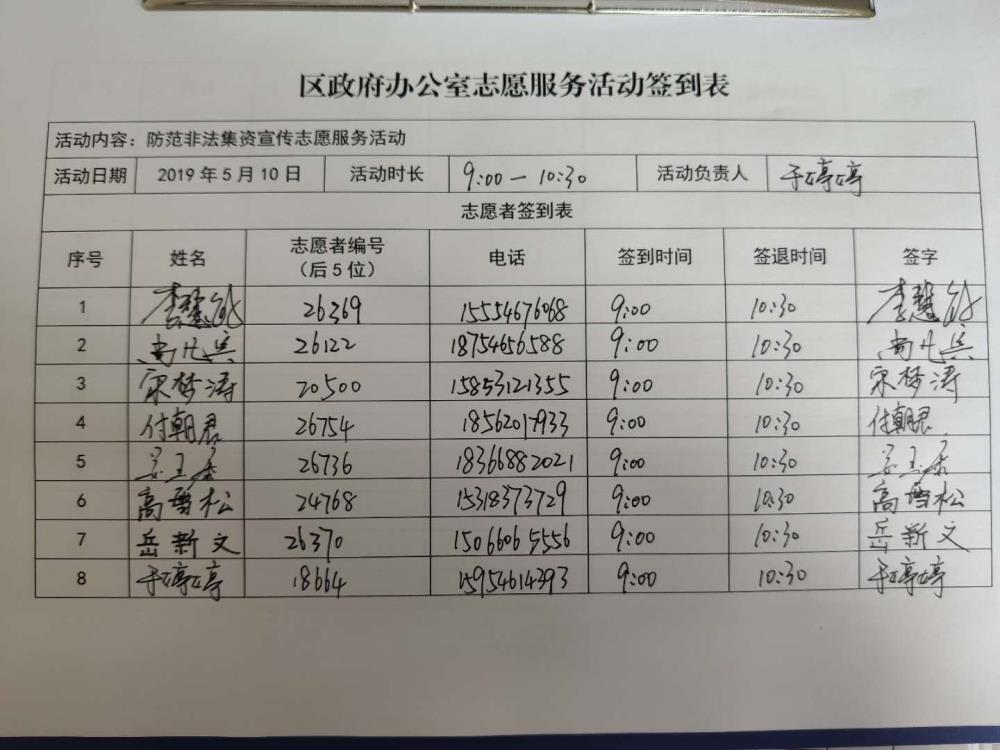 区政府办公室志愿服务活动签到表
活动内容：防范非法集资宣传志愿服务活动
活动日期 2019年5月10日 活动时长 9:00—10:30 活动负责人 于婷婷
志愿者签到表
序号 姓名 志愿者编号（后5位） 电话 签到时间 签退时间 签字
1 李慧 26369 15554676068 9:00 10:30 李慧
2 尚 26122 18754656588 9:00 10:30 尚
3 宋梦涛 20500 15853121355 9:00 10:30 宋梦涛
4 付朝君 26754 18562017933 9:00 10:30 付朝君
5 26736 18366882021 9:00 10:30
6 高雪松 24768 15318373729 9:00 10:30 高雪松
7 岳新文 26370 15066065556 9:00 10:30 岳新文
8 于婷婷 18664 15954614393 9:00 10:30 于婷婷